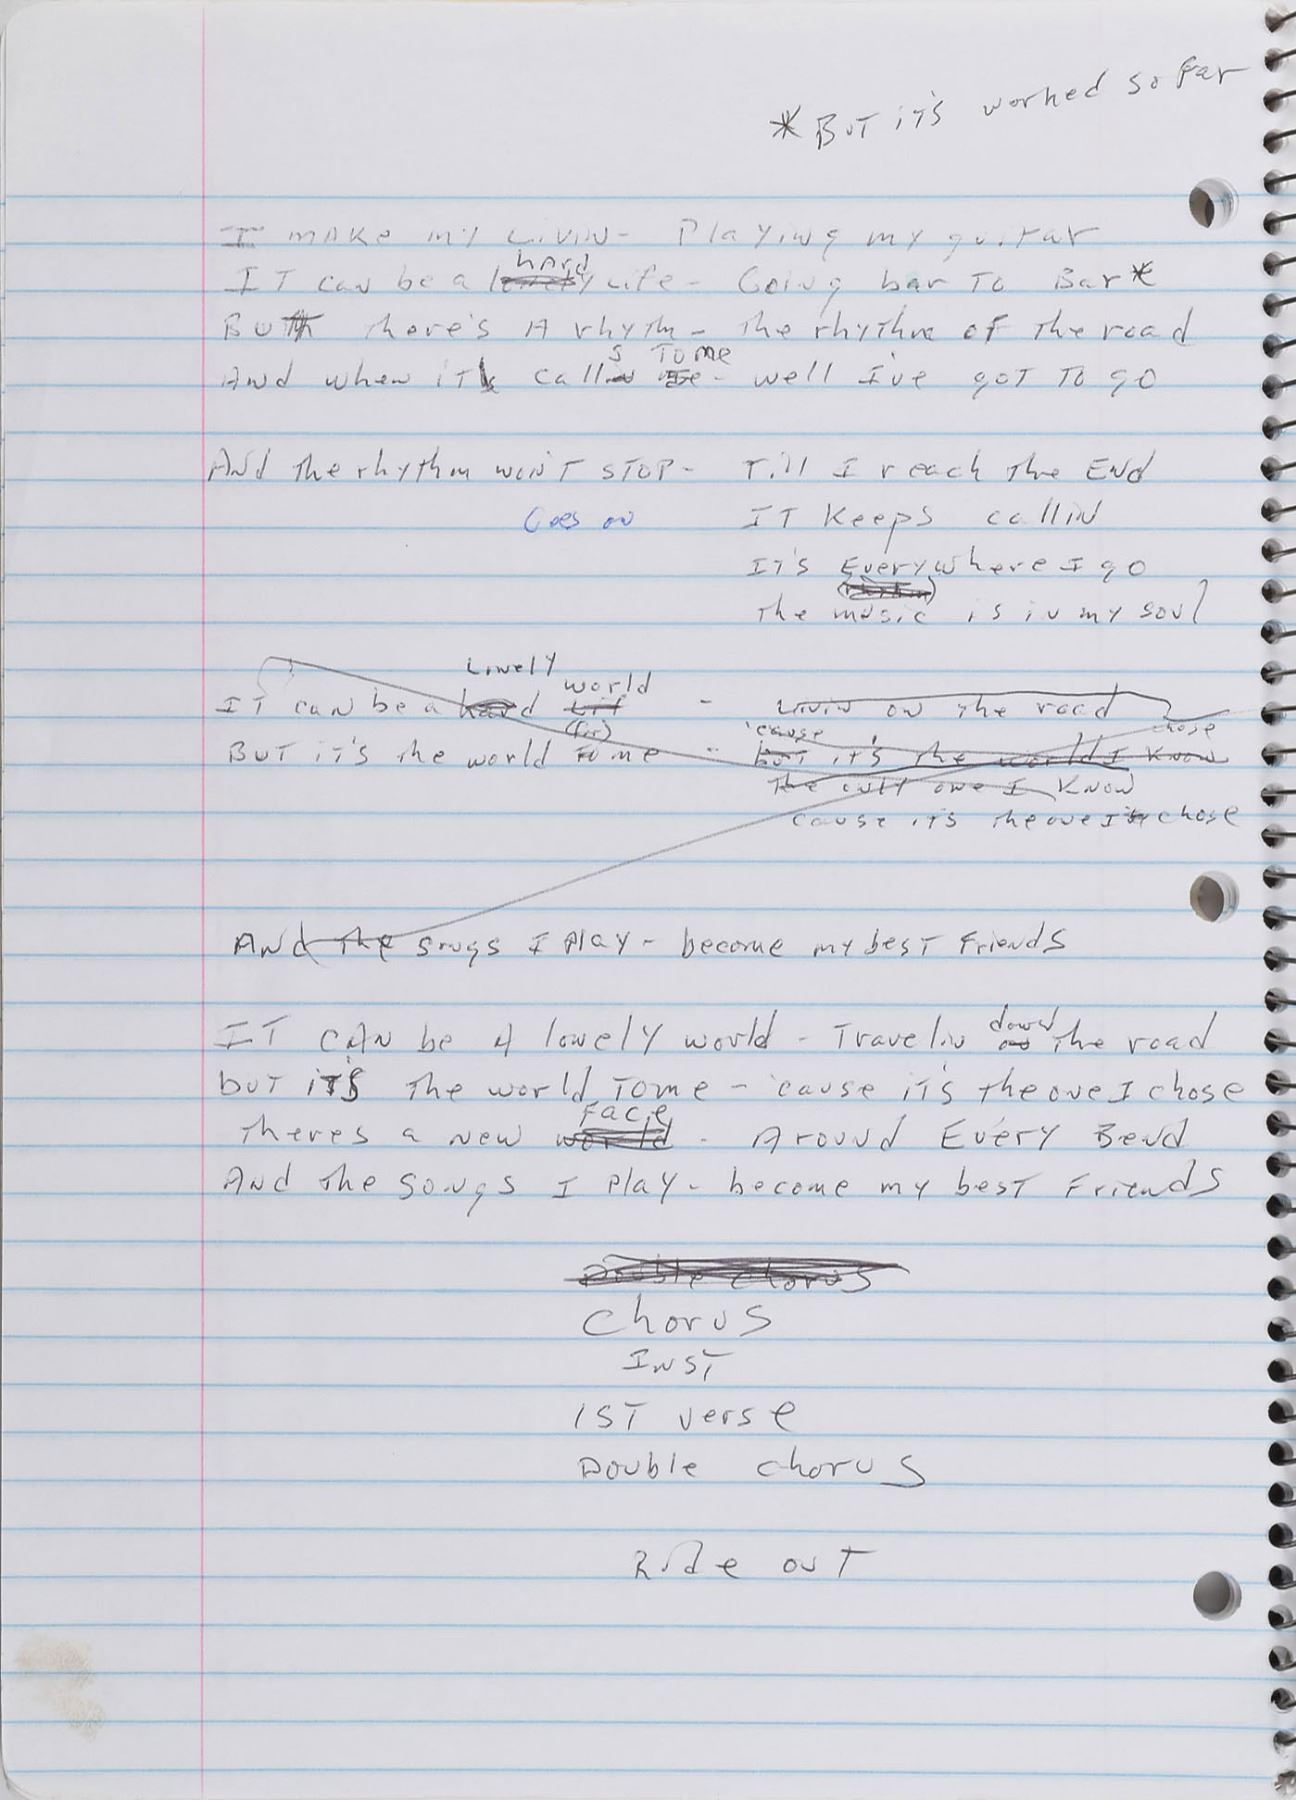 *But it's worked so far
I make my Livin - Playing my guitar
hard
It can be a lonely Life - Going bar to Bar*
But there's A rhythm - the rhythm of the road
s to me
And when it calls - well I've got to go
And the rhythm won't stop - Till I reach the End
Goes on It Keeps callin
It's Everywhere I go
(rhythm)
the music is in my soul
Lonely world
It can be a hard Life - Livin on the road
(for) 'cause chose
But it's the world to me - but it's the world I know
the only one I know
cause it's the one I chose
And the songs I play - become my best Friends
down
It can be A lonely world - Travelin on the road
but it's the world to me - 'cause it's the one I chose
Face
theres a new world - Around Every Bend
And the songs I play - become my best Friends
Double chorus
Chorus
Inst
1st verse
Double chorus
Ride out